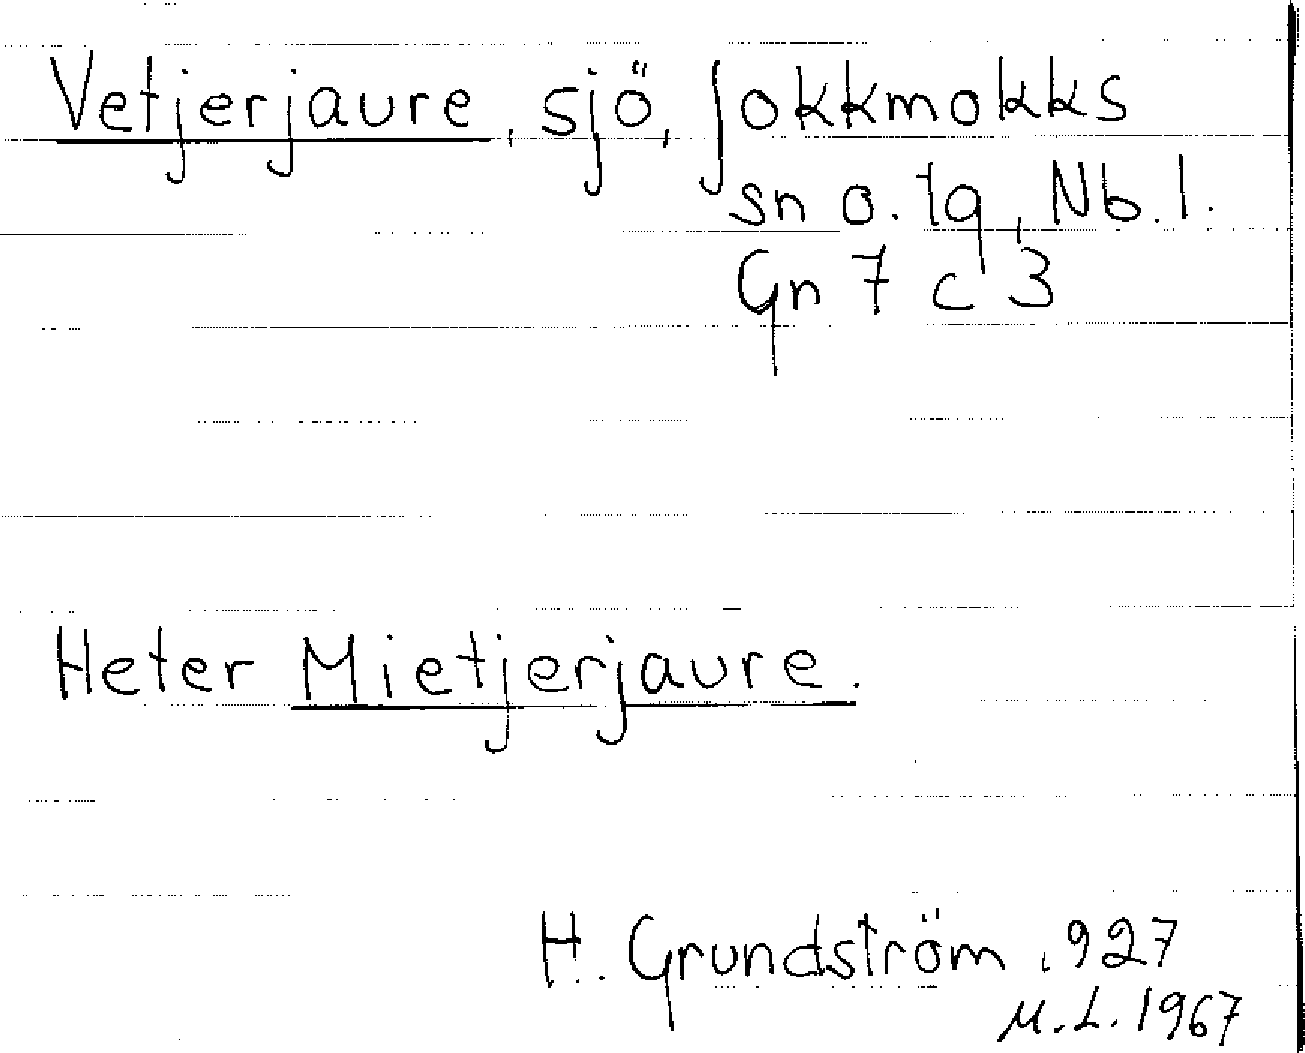 Vetjerjaure, sjö, Jokkmokks
sn o. tg, Nb. l.
Gn 7 c 3
Heter Mietjerjaure.
H. Grundström, 927
M.L. 1967